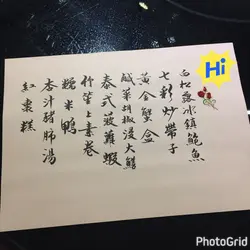 白松露冰鎮鮑魚
七彩炒帶子
黃金蟹盒
鹹菜胡椒浸大鱔
泰式菠蘿蝦
竹笙上素卷
糯米鴨
杏汁豬肺湯
紅棗糕
Hi
PhotoGrid